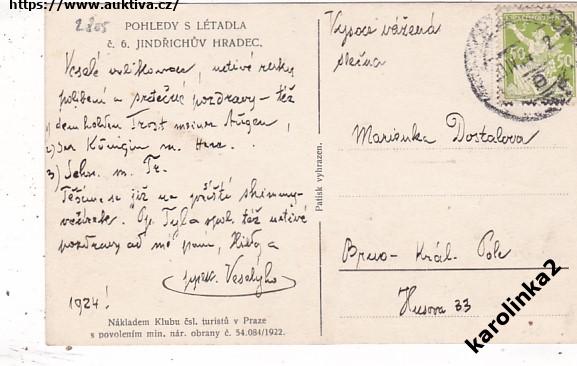 https://www.auktiva.cz/
2805
POHLEDY S LÉTADLA
č. 6. JINDŘICHŮV HRADEC.
Veselé velikonoce, uctivé ruky
políbení a srdečné pozdravy – též
1) dem holden Trost meiner Augen,
2) der Königin m. Herz.
3) m. Tr.
Těšíme se již na příští shimmy-
večírek. Pp. Tyla spol. též uctivé
pozdravy od mé paní, a
Veselýho
1924!
Nákladem Klubu čsl. turistů v Praze
s povolením min. nár. obrany č. 54.084/1922.
Patisk vyhrazen.
Vysoce vážená
slečna
Marienka Dostalova
Brno - Král. Pole
Husova 33
50 50
karolinka2